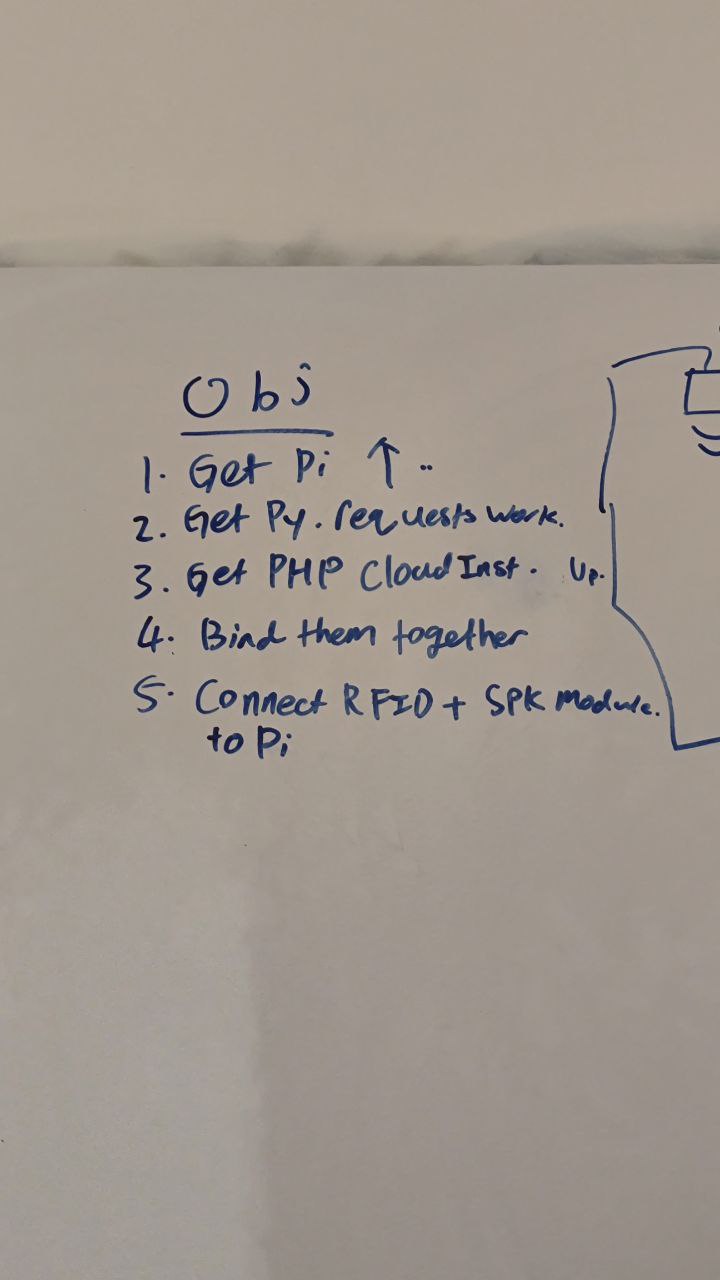 Obj
1. Get Pi ↑ ..
2. Get Py. requests work.
3. Get PHP Cloud Inst. Up.
4. Bind them together
5. Connect RFID + SPK Module.
to Pi